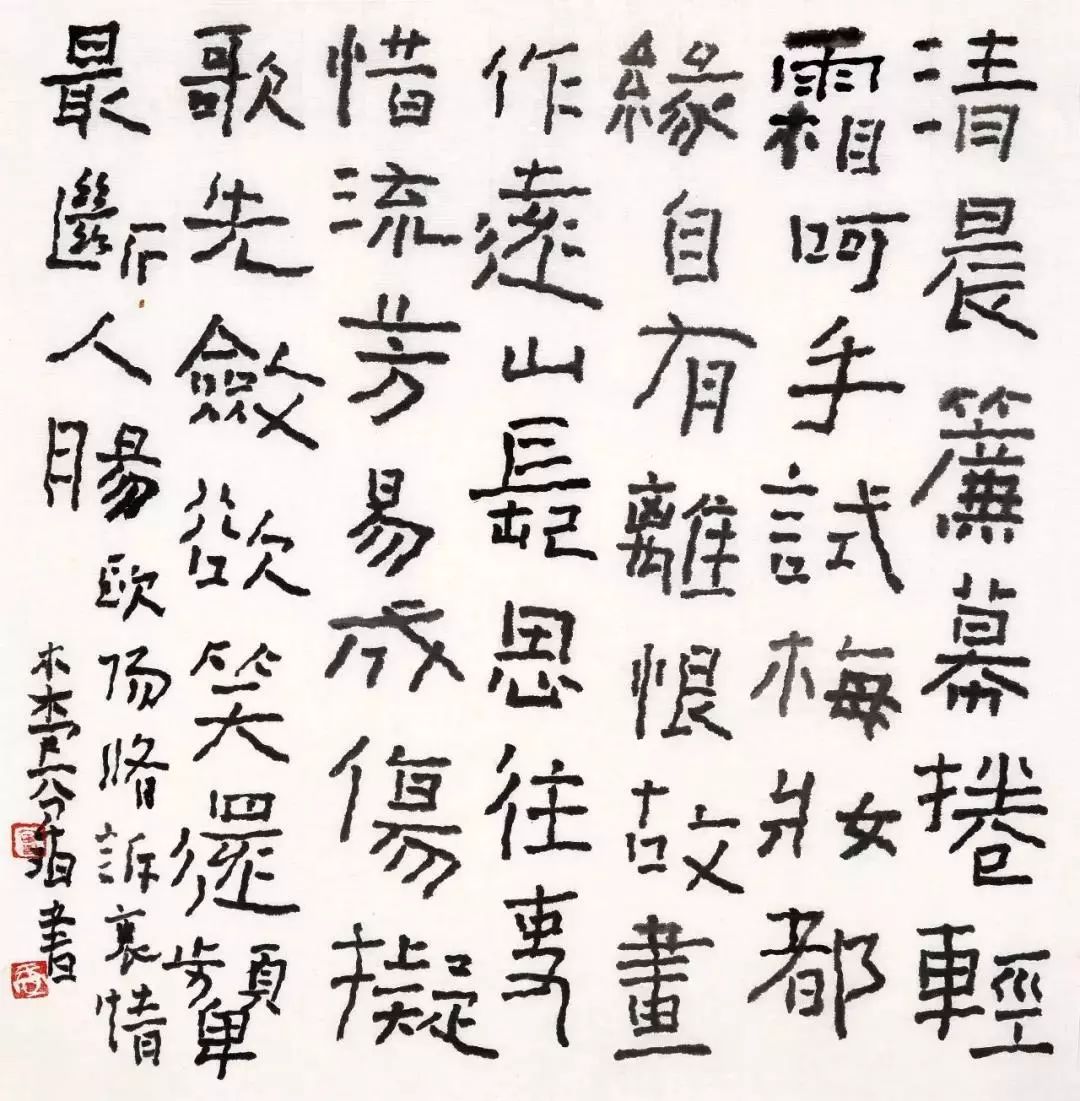 清晨簾幕捲輕
霜呵手試梅妝都
緣自有離恨故畫
作遠山長思往事
惜流芳易成傷擬
歌先斂欲笑還顰
最斷人腸
歐陽脩訴衷情
書